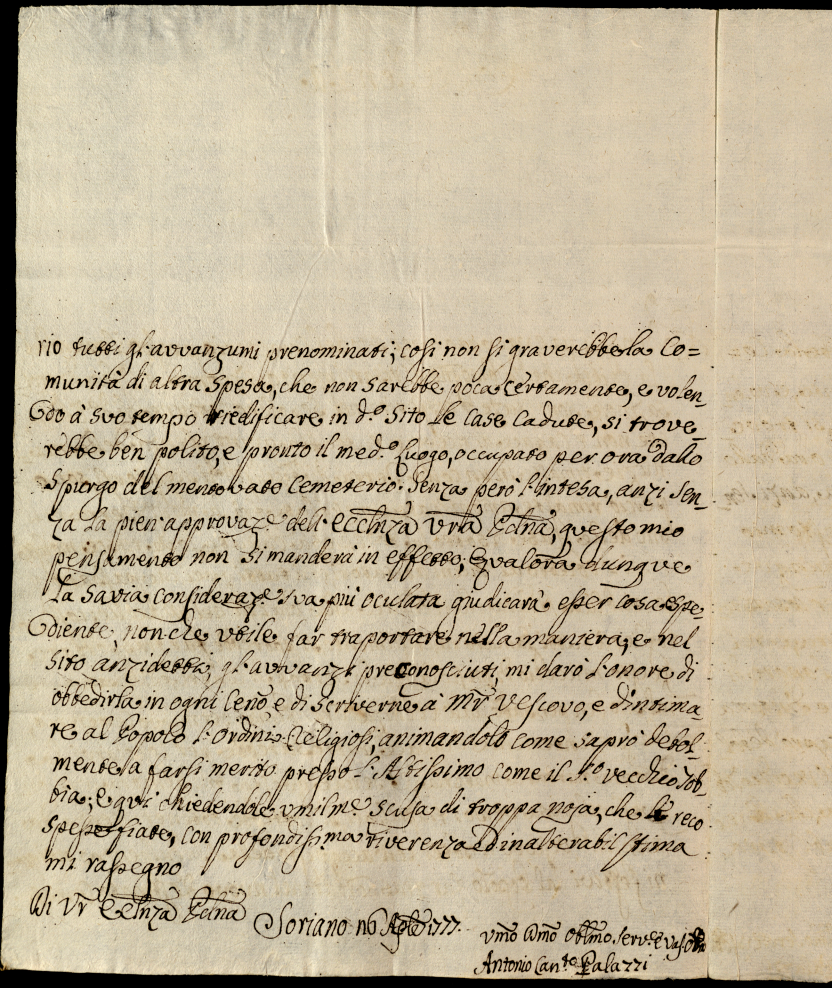 rio tutti gl'avvanzumi prenominati; così non si graverebbe la Co=
munità di altra Spesa, che non sarebbe poca certamente, e volen-
do à suo tempo riedificare in d.º Sito le case cadute, si trove-
rebbe ben polito, e pronto il med.º Luogo, occupato per ora dallo
Spurgo del mentovato Cemeterio. Senza però l'intesa, anzi sen-
za la pien'approvaz.e dell'Ecclnza Vrã, questo mio
pensamento non si manderà in effetto; Qvalora dunque
la savia consideraz.e sva più oculata giudicarà esser cosa espe-
diente, non che vtile far trasportare nella maniera, e nel
sito anzidetti, gl'avvanzi preconosciuti, mi darò l'onore di
obbedirla in ogni Cenõ e di scriverne à Mr̃ Vescovo, e d'intima-
re al Popolo l'Ordini Religiosi, animandolo come saprò debol-
mente a farsi merito presso l'Altissimo come il S.º vecchio Tob-
bia; e qui chiedendole vmilme.e scusa di troppa noja, che le reco
spesse fiate, con profondissima riverenza, ed inalterabil stima
mi rassegno
Di Vr̃ Ecclnza
Soriano 16 Aple 1777.
Vmõ Dmõ Obblmõ Serv.e
Antonio Can.co Palazzi